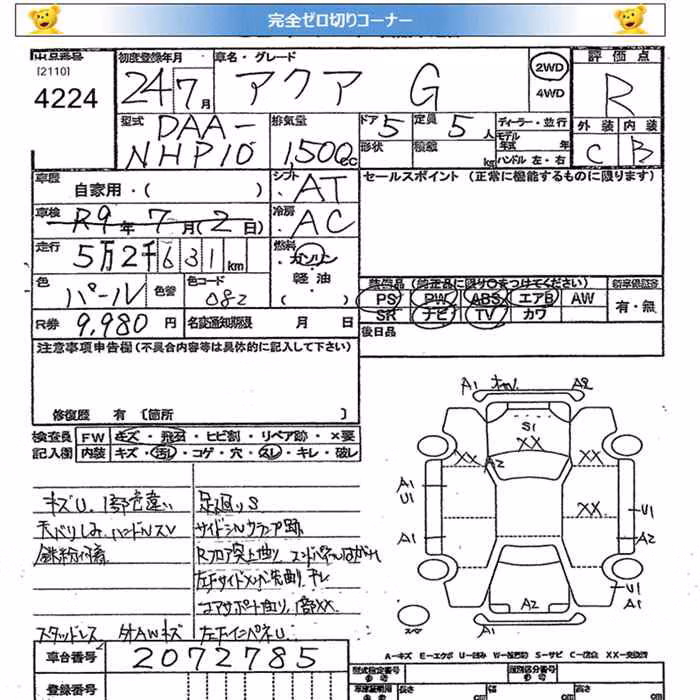 完全ゼロ切りコーナー
出品番号 初度登録年月 車名・グレード 評価点
[2110]
4224 24 7月 アクア G 2WD 4WD R
型式 排気量 ドア 定員 ディーラー・並行 外装 内装
DAA-NHP10 1,500cc 5 5人 モデル年式 年 C B
形状 積載 kg ハンドル 左・右
車歴 自家用・( ) シフト AT セールスポイント(正常に機能するものに限ります)
車検 R9年7月(2日) 冷房 AC
走行 5万2千631km 燃料 ガソリン
軽油
( )
色 パール 色替 色コード 082 装備品(純正品に限り○をつけてください)
PS PW ABS エアB AW 有・無
SR ナビ TV カワ
R券 9,980円 名変通知期限 月 日 後日品
注意事項申告欄(不具合内容等は具体的に記入して下さい)
修復歴 有 [箇所 ]
検査員 FW キズ・飛石・ヒビ割・リペア跡・×要
記入欄 内装 キズ・汚レ・コゲ・穴・スレ・キレ・破レ
A1 A2
S1
XX
XX A2
A1 U1 XX U1
A1 A2
U1 A1
A2
A1
スペア
キズU 1部色違い 足回りS
天バリしみ ハンドルスレ サイドシルクランプ跡
鉄粉付着 Rフロア突上曲り
コアサポート曲り 1部XX
スタッドレス 外AWキズ 左FインパネU
A-キズ E-エクボ U-凹み S-サビ C-腐食 XX-交換済
車台番号 2072785 型式指定番号 類別区分番号
登録番号 参考 長さ cm 幅 cm 高さ cm